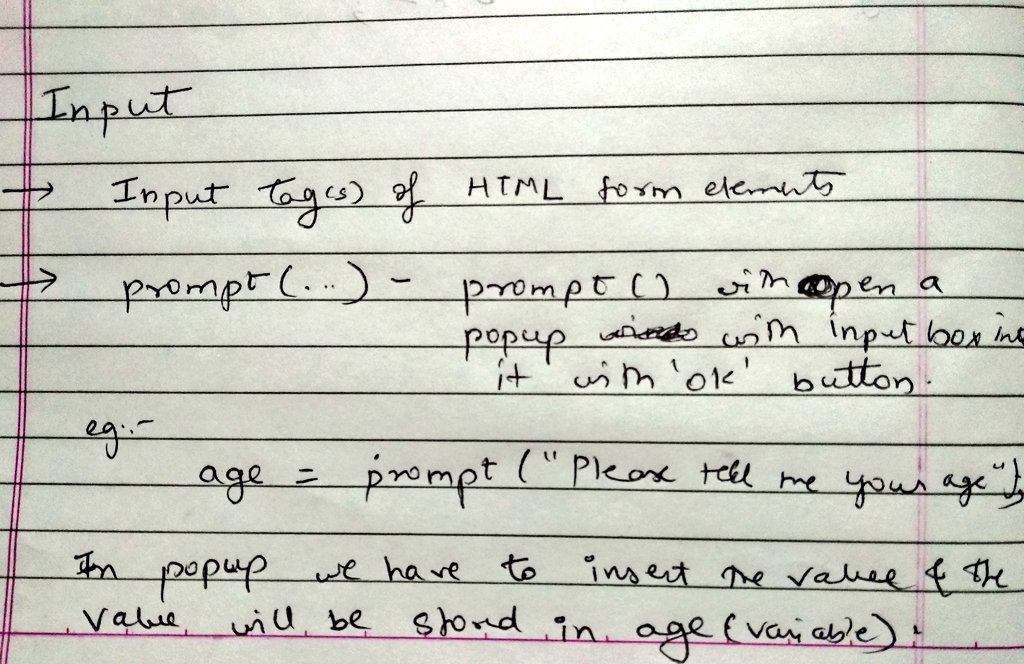 Input
→ Input tag(s) of HTML form elements
→ prompt(...) - prompt() with open a
popup with input box in
it with 'ok' button.
eg:-
age = prompt ("Please tell me your age");
In popup we have to insert the value & the
value will be stored in age (variable).